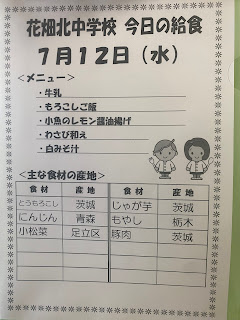 花畑北中学校 今日の給食
7月12日（水）
＜メニュー＞
・牛乳
・もろこしご飯
・小魚のレモン醤油揚げ
・わさび和え
・白みそ汁
＜主な食材の産地＞
食材 産地 食材 産地
とうもろこし 茨城 じゃが芋 茨城
にんじん 青森 もやし 栃木
小松菜 足立区 豚肉 茨城